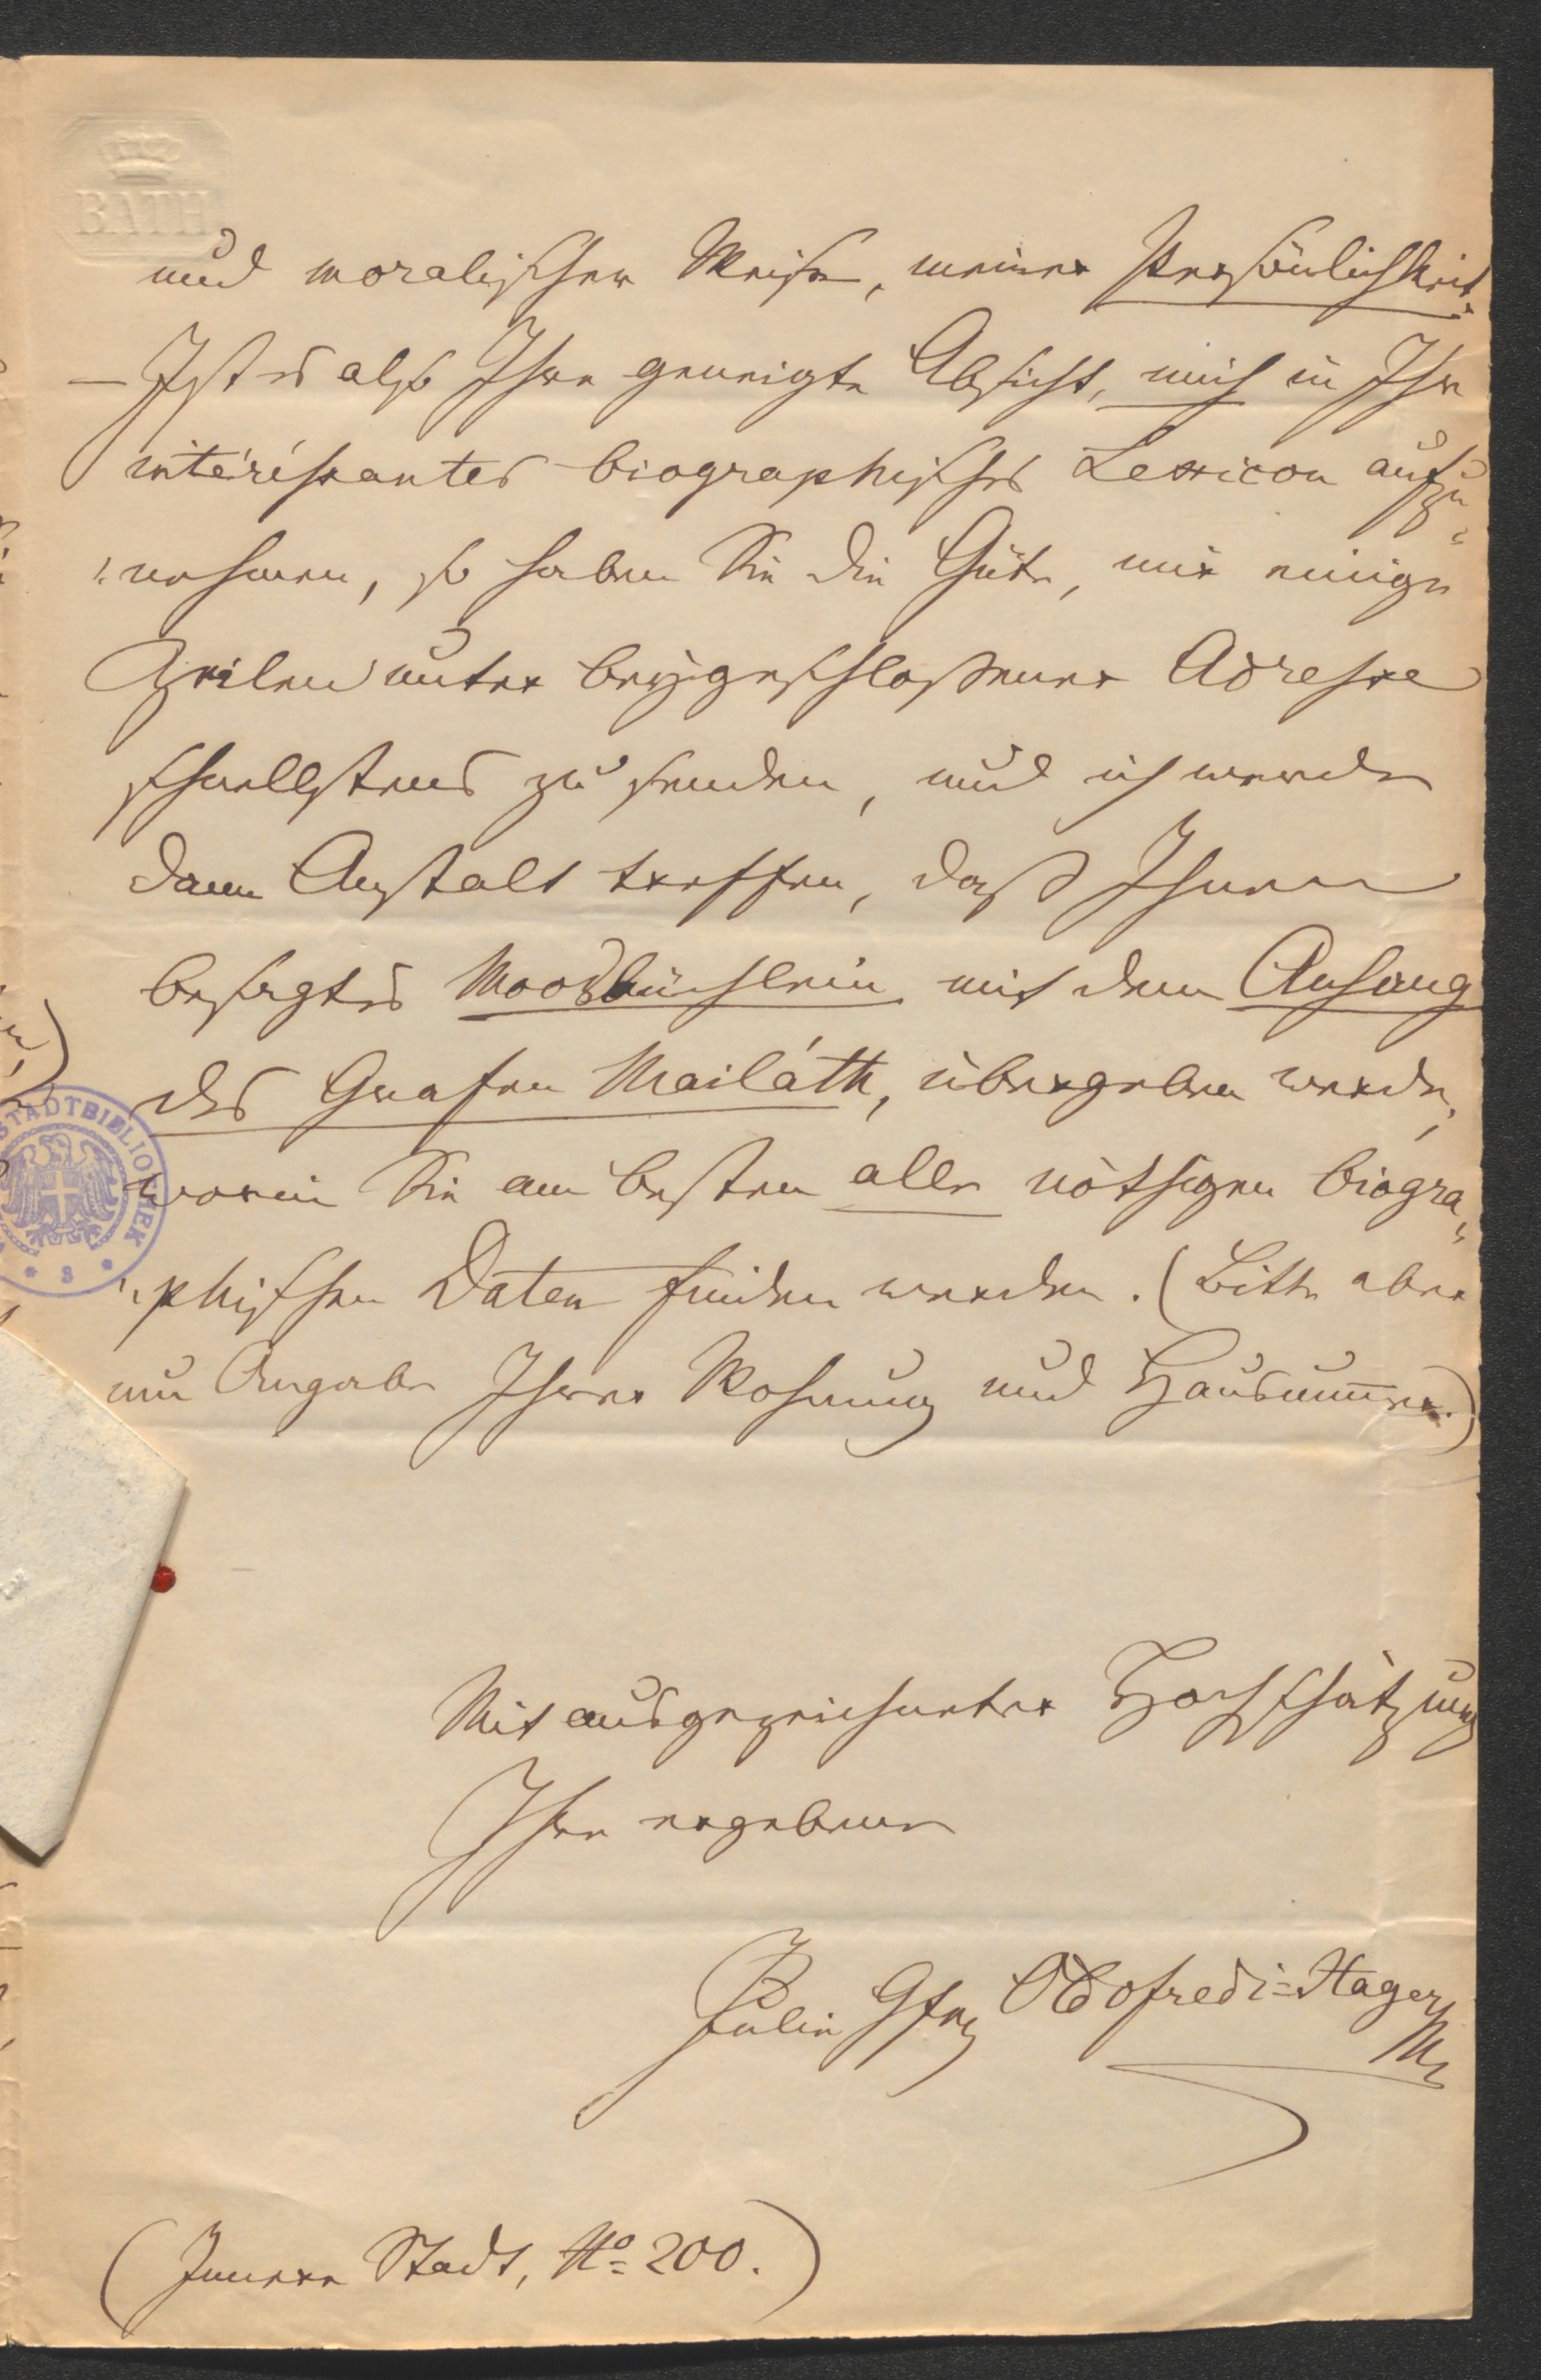 BATH
und moralischer Weise, meiner Persönlichkeit.
– Ist es also Ihre geneigte Absicht, mich in Ihr
intéréssantes biographisches Lexicon aufzu=
=nehmen, so haben Sie die Güte, mir einige
Zeilen unter beygeschlossener Adresse
schnellstens zu senden, und ich werde
dann Anstalt treffen, daß Ihnen
besagtes Moosbüchlein mit dem Anhang
des Grafen Mailáth, übergeben werde,
worin Sie am besten alle nöthigen biogra=
=phischen Daten finden werden. (Bitte aber
um Angabe Ihrer Wohnung und Hausnum̅er.)
STADTBIBLIOTHEK
Mit ausgezeichneter Hochschätzung
Ihre ergebene
Julie Gfin Oldofredi=Hager
(Innere Stadt, No 200.)